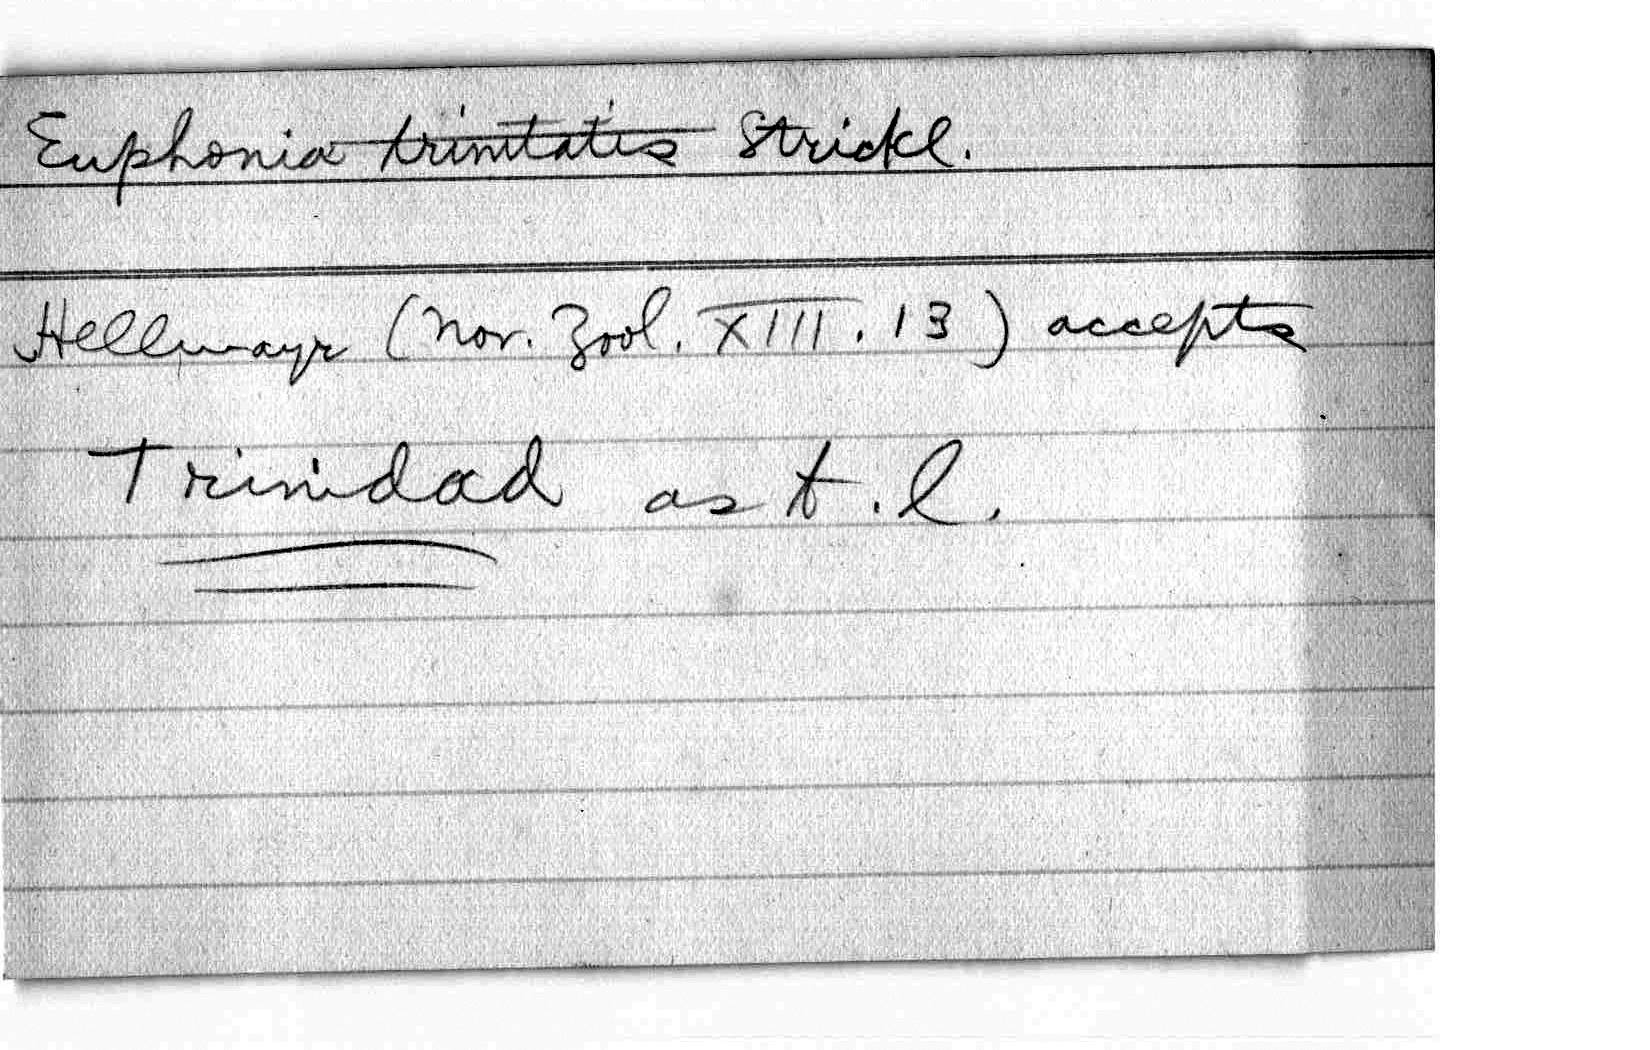 Euphonia trinitatis Strickl.
Hellmayr (Nov. Zool. XIII. 13) accepts
Trinidad as t.l.